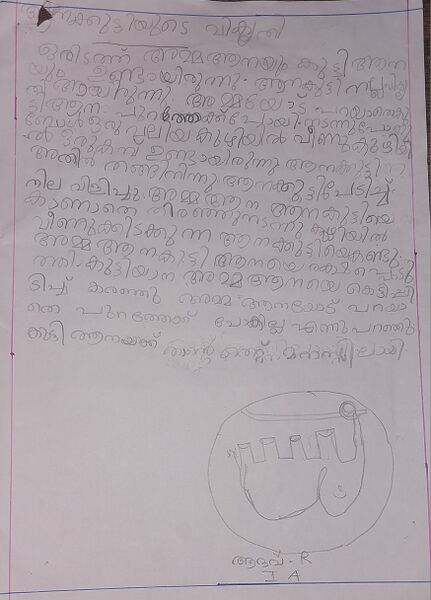 ആനക്കുട്ടിയുടെ വികൃതി
ഒരിടത്ത് അമ്മ ആനയും കുട്ടി ആന
യും ഉണ്ടായിരുന്നു. ആനകുട്ടി നല്ല വികൃ
തി ആയിരുന്നു. അമ്മയോട് പറയാതെ കു
ട്ടിആന പുറത്തേക്ക് പോയി. നടന്നു പോകു
മ്പോൾ ഒരു വലിയ കുഴിയിൽ വീണു കുഴിയി
ൽ ഒരു കമ്പ് ഉണ്ടായിരുന്നു ആനക്കുട്ടി
അതിൽ തങ്ങിനിന്നു. ആനക്കുട്ടി പേടിച്ച്
നില വിളിച്ചു. അമ്മ ആന ആനകുട്ടിയെ
കാണാതെ തിരഞ്ഞു നടന്നു കുഴിയിൽ
വീണുക്കിടക്കുന്ന ആനക്കുട്ടിയെ കണ്ടു.
അമ്മ ആന കുട്ടി ആനയെ രക്ഷപ്പെടു
ത്തി. കുട്ടിയാന അമ്മ ആനയെ കെട്ടിപ്പി
ടിച്ച് കരഞ്ഞു അമ്മ ആനയോട് പറയാ
തെ പുറത്തേക്ക് പോകില്ല എന്നു പറഞ്ഞു
കുട്ടി ആനയക്ക് തന്റെ തെറ്റ് മനസ്സിലായി.
ആദവ് - R
I A